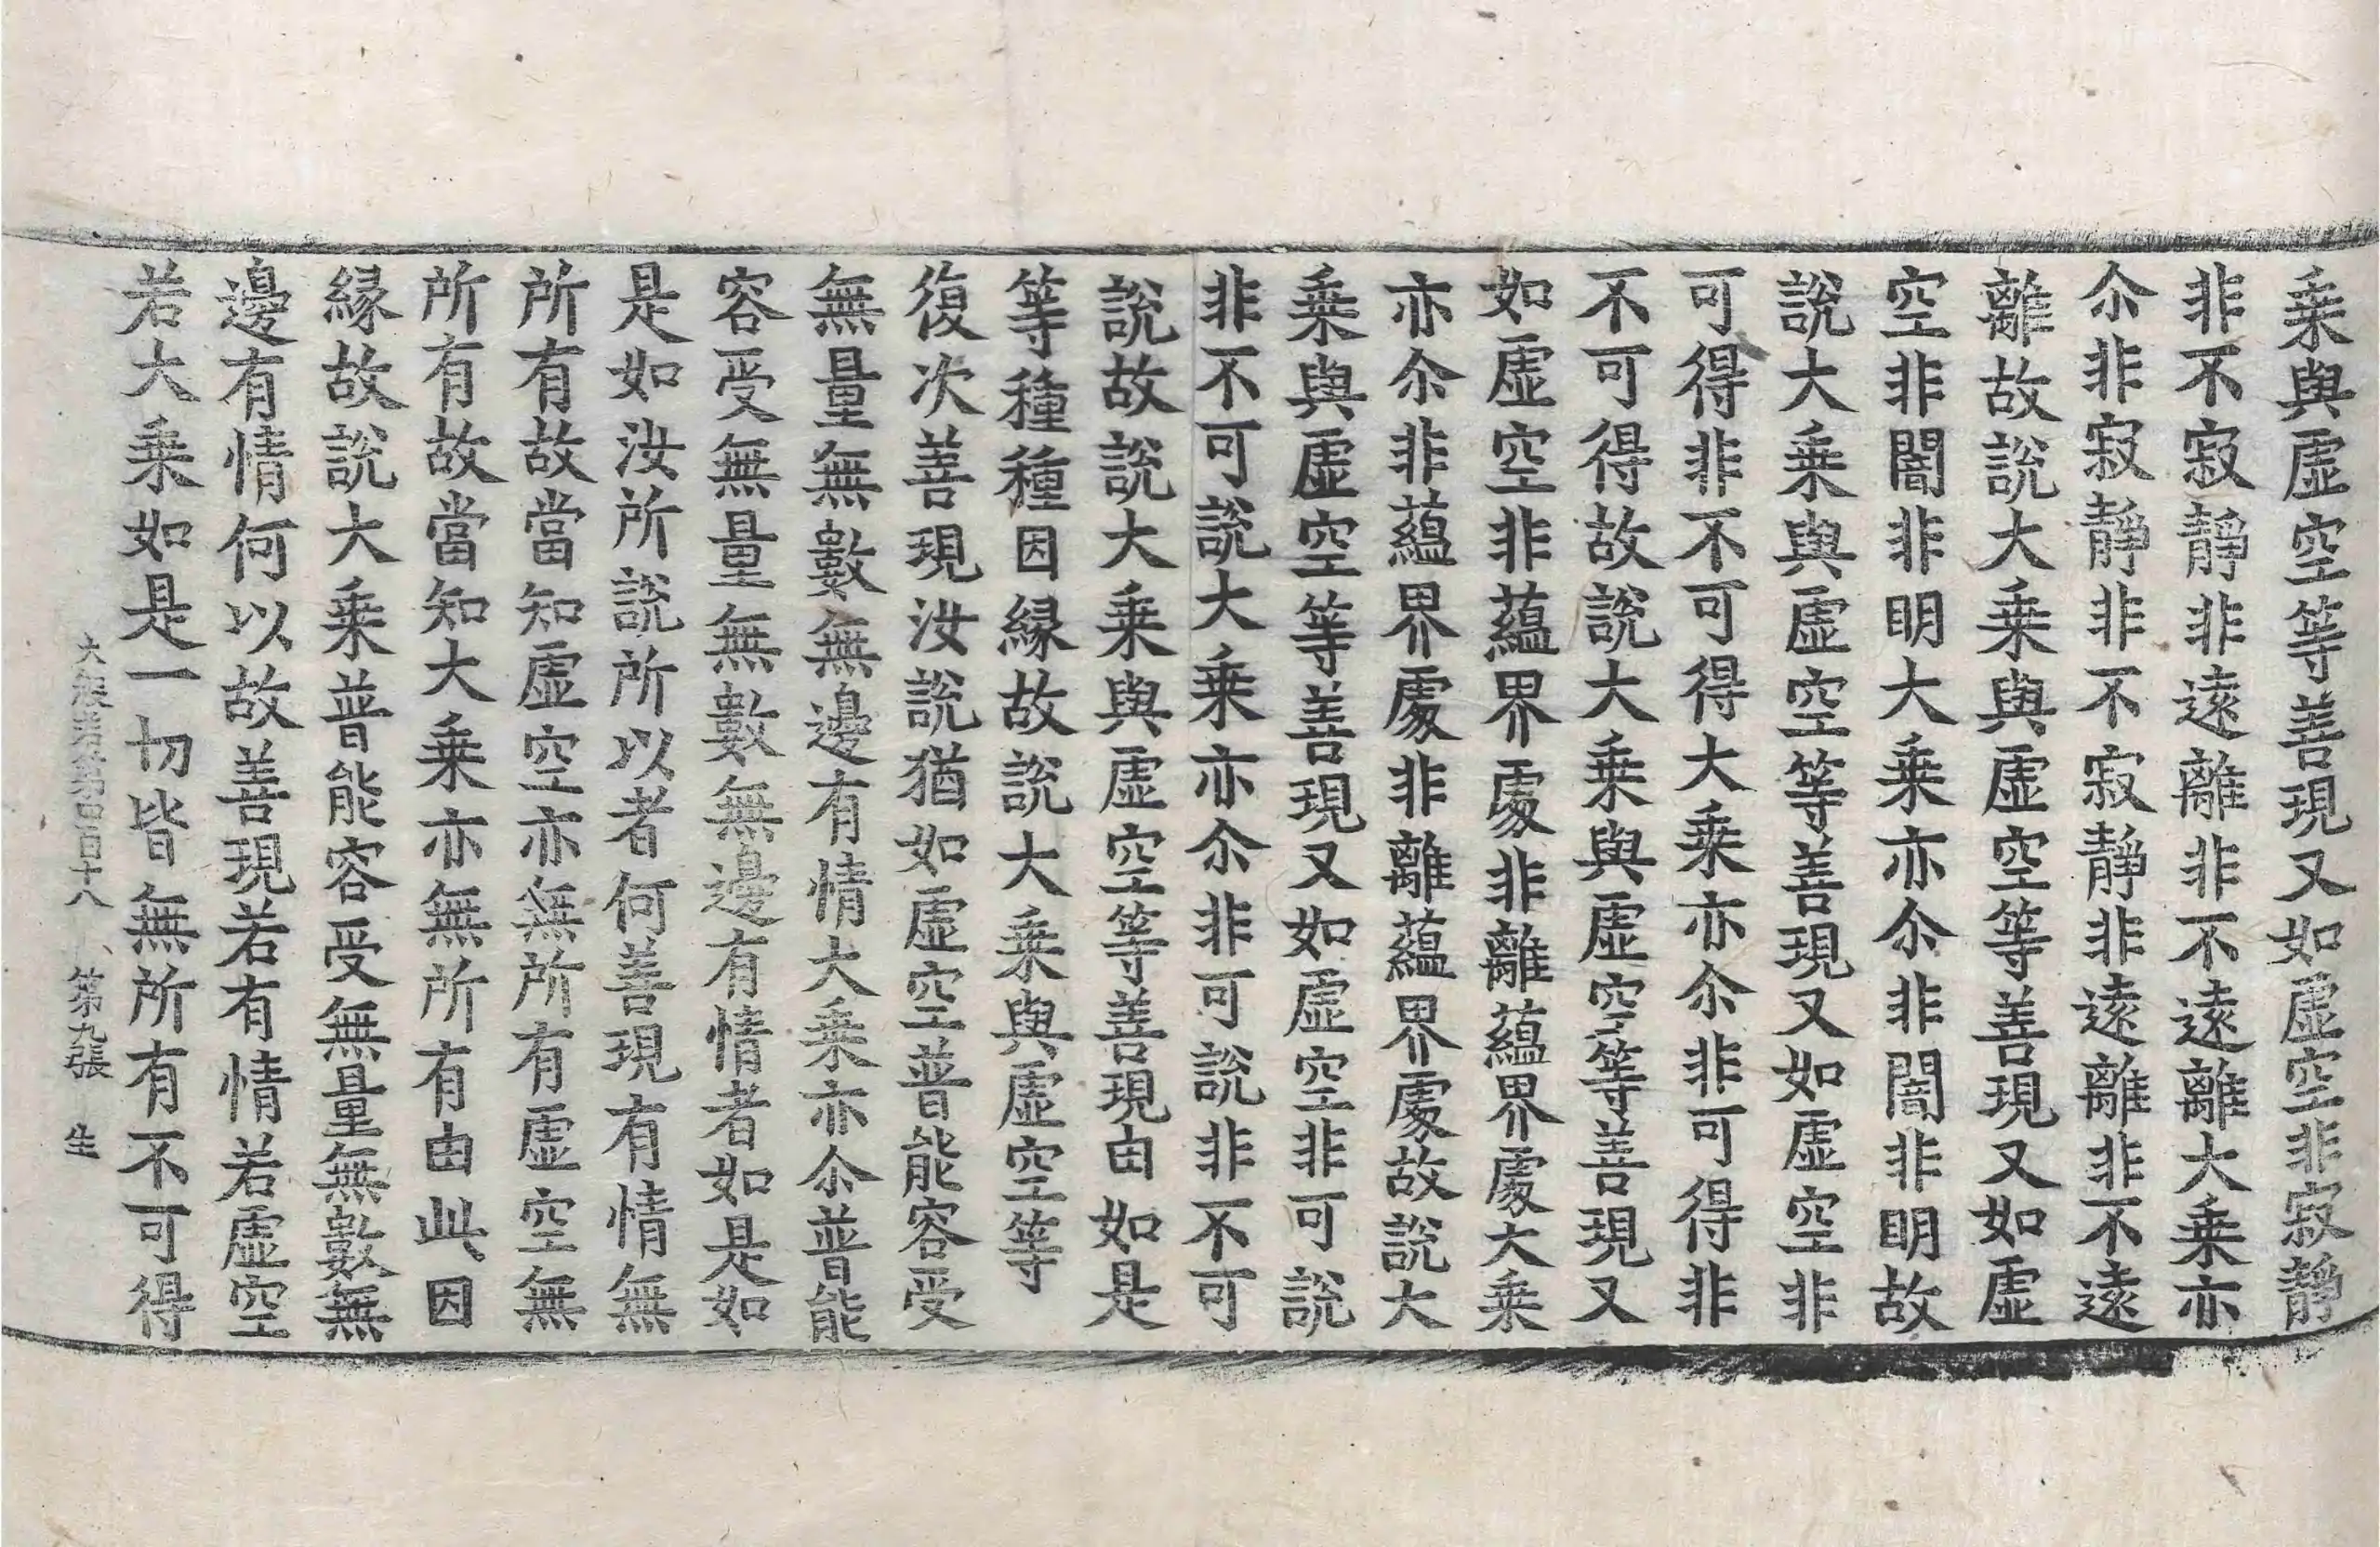 乗與虛空等善現又如虛空非寂靜
非不寂靜非遠離非不遠離大乗亦
尒非寂靜非不寂靜非遠離非不遠
離故說大乗與虛空等善現又如虛
空非闇非明大乗亦尒非闇非明故
說大乗與虛空等善現又如虛空非
可得非不可得大乗亦尒非可得非
不可得故說大乗與虛空等善現又
如虛空非蘊界處非離蘊界處大乗
亦尒非蘊界處非離蘊界處故說大
乗與虛空等善現又如虛空非可說
非不可說大乗亦尒非可說非不可
說故說大乗與虛空等善現由如是
等種種因緣故說大乗與虛空等
復次善現汝說猶如虛空普能容受
無量無數無邊有情大乗亦尒普能
容受無量無數無邊有情者如是如
是如汝所說所以者何善現有情無
所有故當知虛空亦無所有虛空無
所有故當知大乗亦無所有由此因
緣故說大乗普能容受無量無數無
邊有情何以故善現若有情若虛空
若大乗如是一切皆無所有不可得
大般若第四百十八 第九張 生